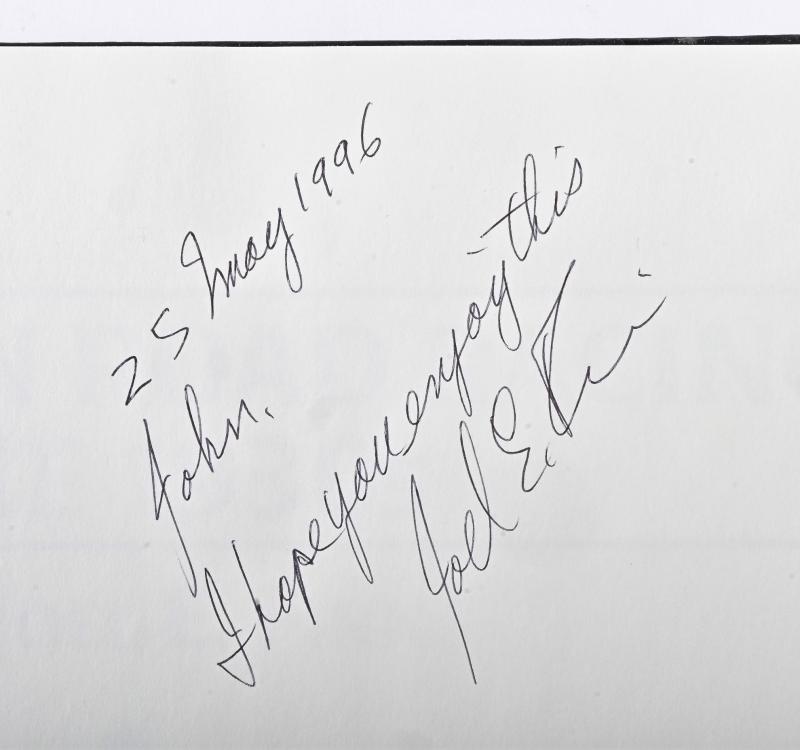 25 May 1996
John,
I hope you enjoy this
Joel E.